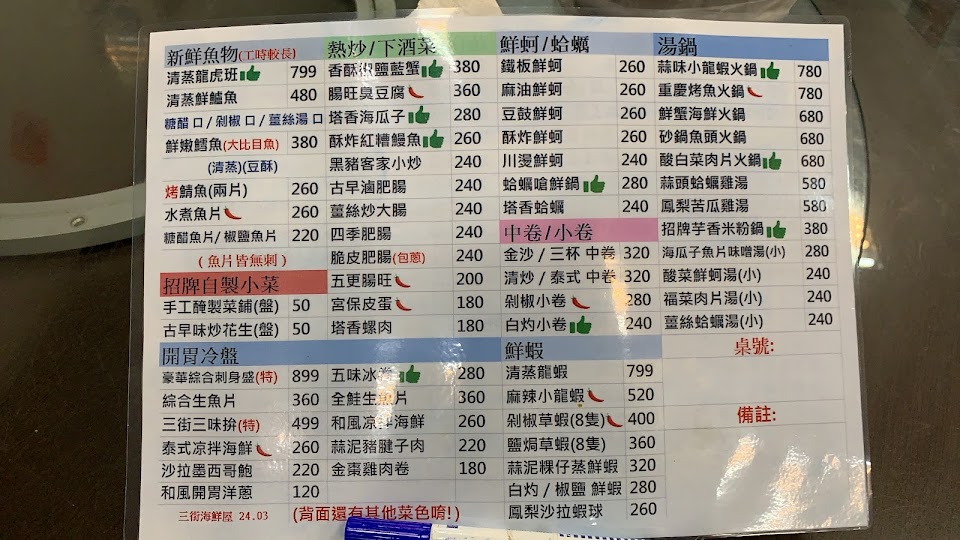 新鮮魚物(工時較長)
清蒸龍虎班 799
清蒸鮮鱸魚 480
糖醋 口 / 剁椒 口 / 薑絲湯 口
鮮嫩鱈魚(大比目魚) 380
(清蒸)(豆酥)
烤鯖魚(兩片) 260
水煮魚片 260
糖醋魚片/ 椒鹽魚片 220
( 魚片皆無刺 )
招牌自製小菜
手工醃製菜鋪(盤) 50
古早味炒花生(盤) 50
熱炒/下酒菜
香酥椒鹽藍蟹 380
腸旺臭豆腐 360
塔香海瓜子 280
酥炸紅糟鰻魚 260
黑豬客家小炒 240
古早滷肥腸 240
薑絲炒大腸 240
四季肥腸 240
脆皮肥腸(包蔥) 240
五更腸旺 200
宮保皮蛋 180
塔香螺肉 180
鮮蚵/蛤蠣
鐵板鮮蚵 260
麻油鮮蚵 260
豆鼓鮮蚵 260
酥炸鮮蚵 260
川燙鮮蚵 240
蛤蠣嗆鮮鍋 280
塔香蛤蠣 240
中卷/小卷
金沙 / 三杯 中卷 320
清炒 / 泰式 中卷 320
剁椒小卷 280
白灼小卷 240
湯鍋
蒜味小龍蝦火鍋 780
重慶烤魚火鍋 780
鮮蟹海鮮火鍋 680
砂鍋魚頭火鍋 680
酸白菜肉片火鍋 680
蒜頭蛤蠣雞湯 580
鳳梨苦瓜雞湯 580
招牌芋香米粉鍋 380
海瓜子魚片味噌湯(小) 280
酸菜鮮蚵湯(小) 240
福菜肉片湯(小) 240
薑絲蛤蠣湯(小) 240
桌號:
備註:
開胃冷盤
豪華綜合刺身盛(特) 899
綜合生魚片 360
三街三味拚(特) 499
泰式涼拌海鮮 260
沙拉墨西哥鮑 220
和風開胃洋蔥 120
五味冰卷 280
全鮭生魚片 360
和風凉拌海鮮 260
蒜泥豬腱子肉 220
金棗雞肉卷 180
鮮蝦
清蒸龍蝦 799
麻辣小龍蝦 520
剁椒草蝦(8隻) 400
鹽焗草蝦(8隻) 360
蒜泥粿仔蒸鮮蝦 320
白灼 / 椒鹽 鮮蝦 280
鳳梨沙拉蝦球 260
三街海鮮屋 24.03
(背面還有其他菜色唷!)